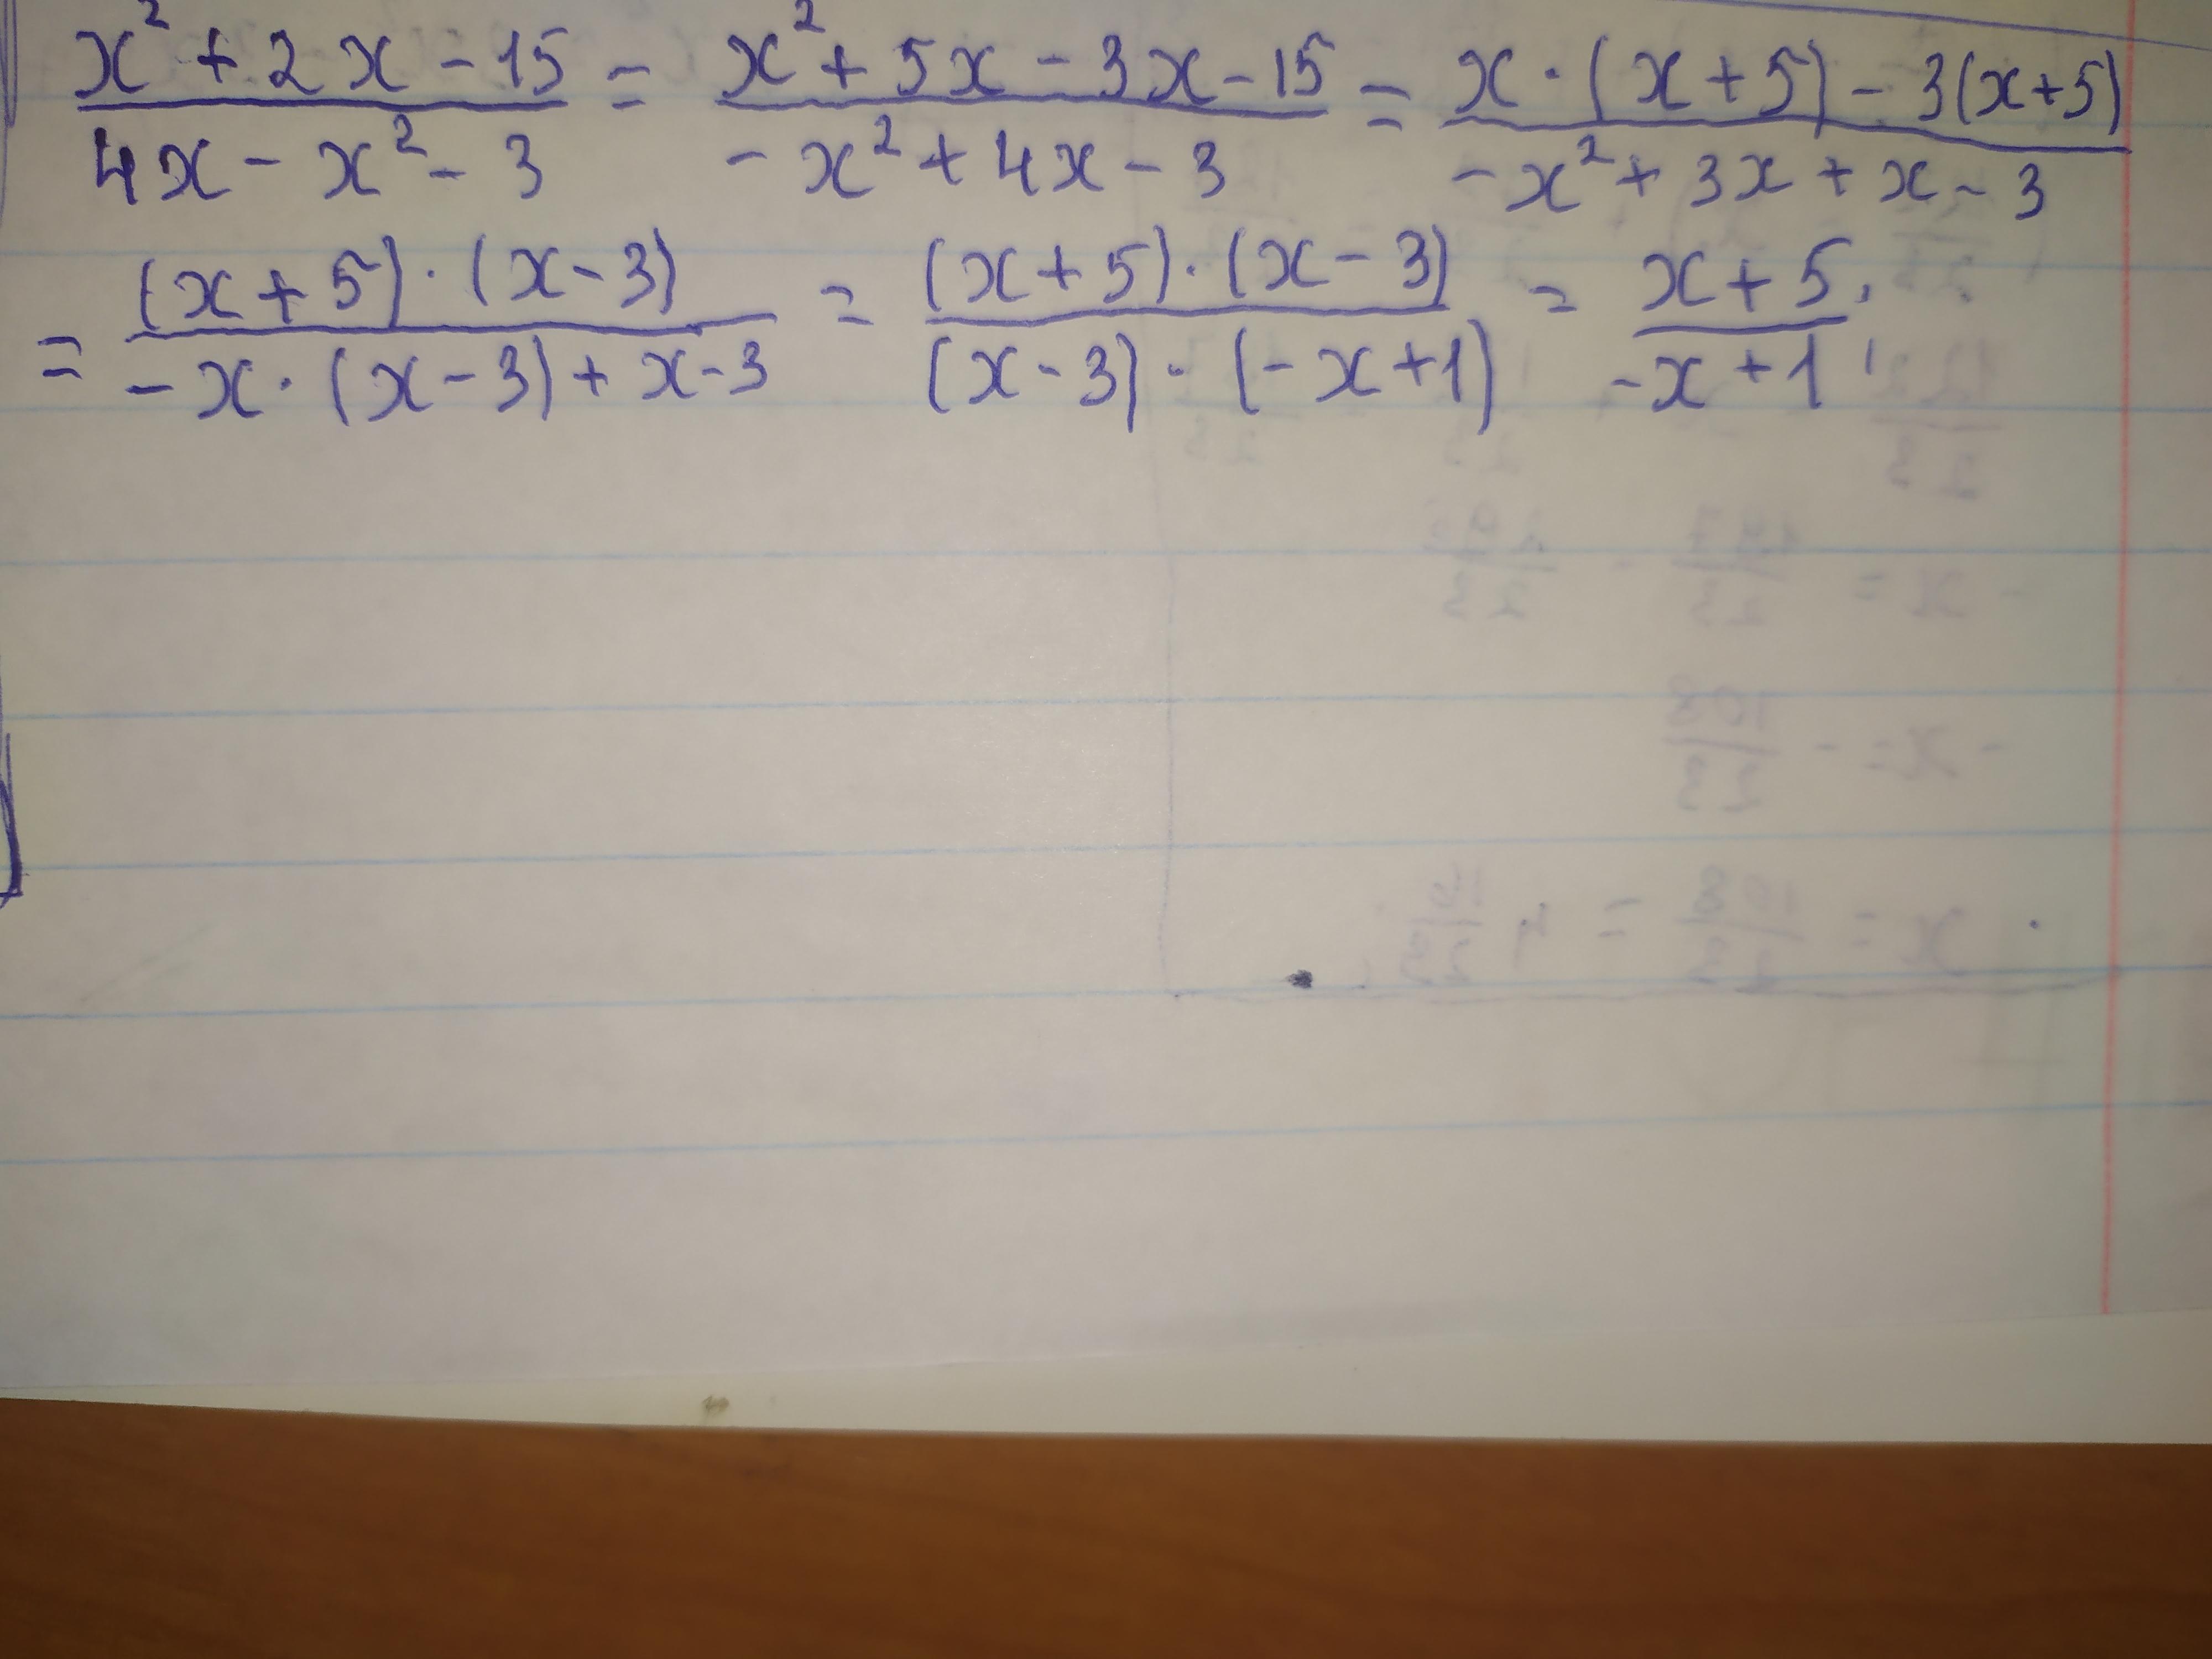 x² + 2x - 15 / 4x - x² - 3 = x² + 5x - 3x - 15 / -x² + 4x - 3 = x · (x + 5) - 3(x+5) / -x² + 3x + x - 3
= (x + 5) · (x - 3) / -x · (x - 3) + x - 3 = (x + 5) · (x - 3) / (x - 3) · (-x + 1) = x + 5 / -x + 1 ;